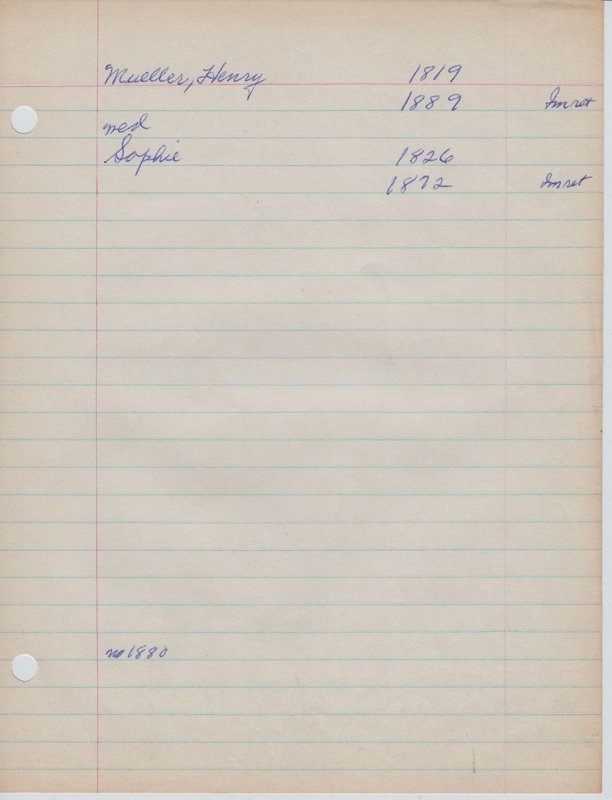 Mueller, Henry 1819
1889 Imret
med
Sophie 1826
1872 Imret
no 1880